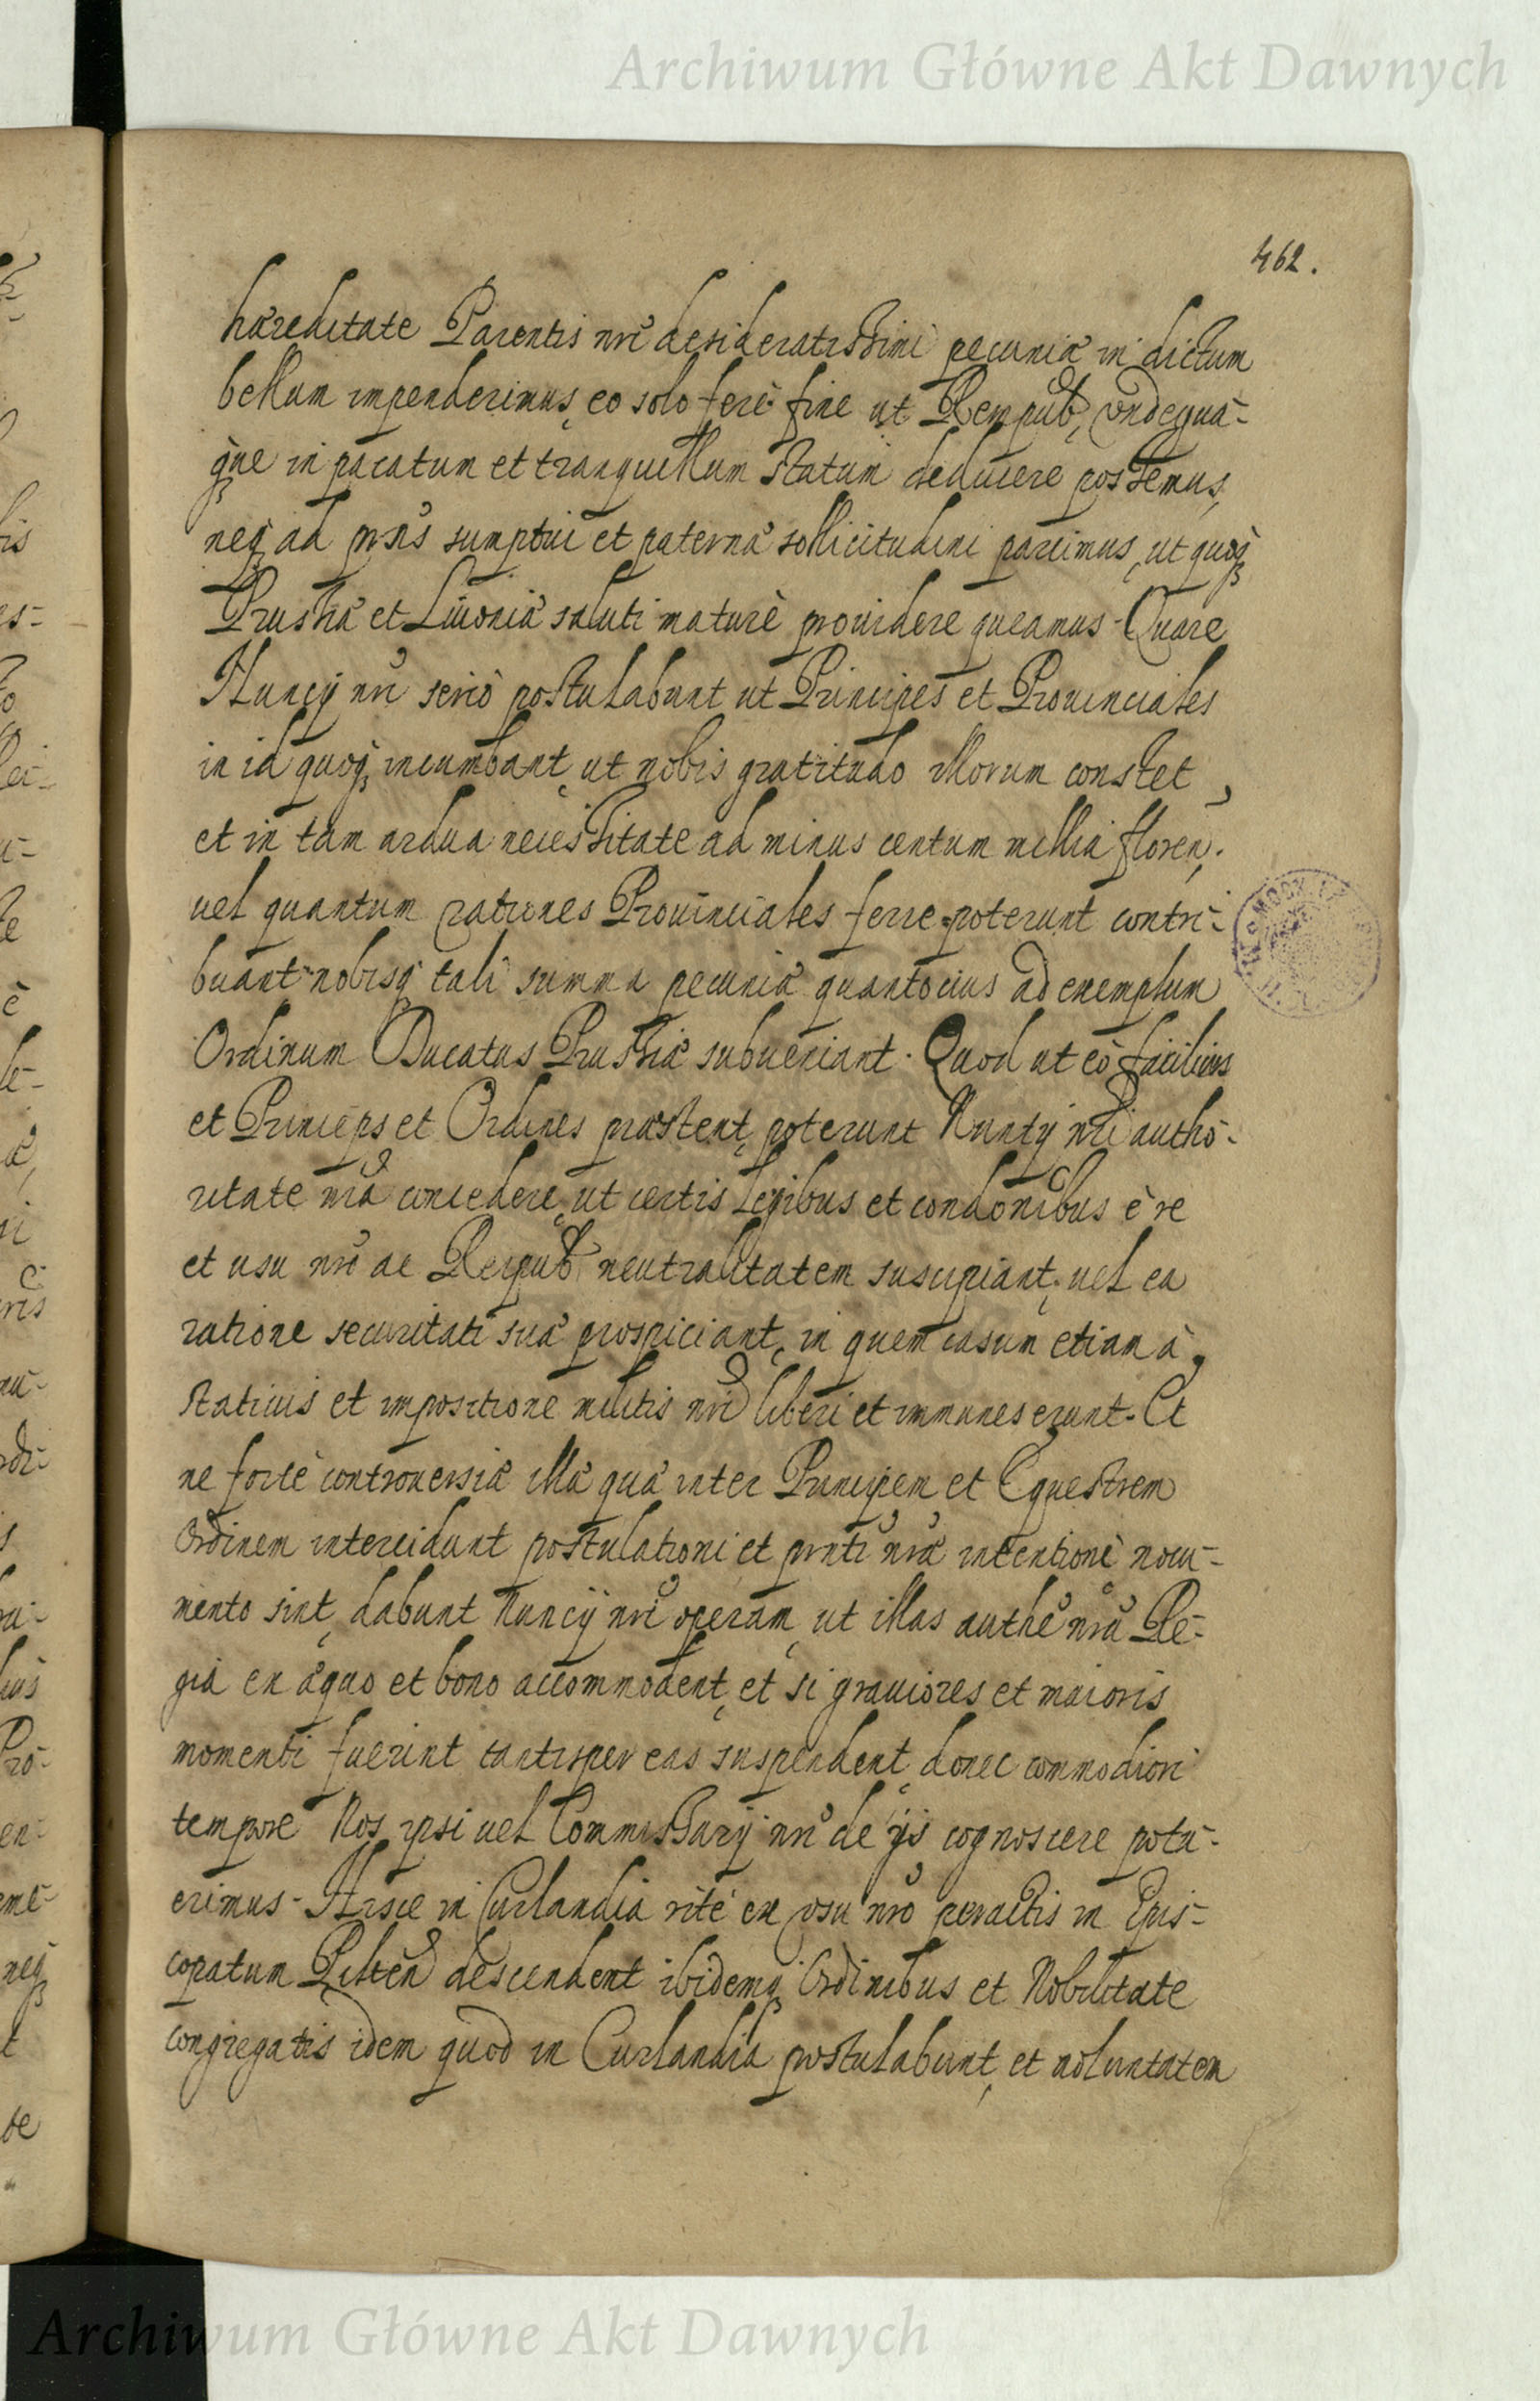 Archiwum Główne Akt Dawnych
462.
hæreditate Parentis nri desideratissimi pecuniæ in dictum
bellum impenderimus, eo solo ferè fine ut Rempub, undequa-
que in pacatum et tranquillum statum deducere possemus,
neq ad prns sumptui et paternæ sollicitudini parcimus, ut quoq
Prussiæ et Livoniæ saluti maturè prouidere queamus. Quare
Nuncij nri seriò postulabunt ut Principes et Prouinciales
in id quoq incumbant, ut nobis gratitudo illorum constet,
et in tam ardua necessitate ad minus centum millia floren.
uel quantum rationes Prouinciales ferre poterunt contri-
buant nobisq tali summa pecuniæ quantocius ad exemplum
Ordinum Ducatus Prussiæ subueniant. Quod ut eò facilius
et Princeps et Ordines præstent, poterunt Nuntij nri autho-
ritate nra concedere, ut certis Legibus et condonibus è re
et usu nro ac Reipub neutralitatem suscipiant, uel ea
ratione securitati suæ prospiciant, in quem casum etiam à
statiuis et impositione militis nri liberi et immunes erunt. Et
ne fortè controuersiæ illæ quæ inter Principem et Equestrem
Ordinem intercidunt postulationi et prnti nræ intentioni nocu-
mento sint, dabunt Nuncij nri operam, ut illas authe nra Re-
gia ex æquo et bono accommodent, et si grauiores et maioris
momenti fuerint tantisper eas suspendent, donec commodiori
tempore Nos ipsi uel Commissarij nri de ijs cognoscere potu-
erimus. Hisce in Curlandia ritè ex usu nro peractis in Epis-
copatum Pilten descendent ibidemq Ordinibus et Nobilitate
congregatis idem quod in Curlandia postulabunt, et uoluntatem
Archiwum Główne Akt Dawnych